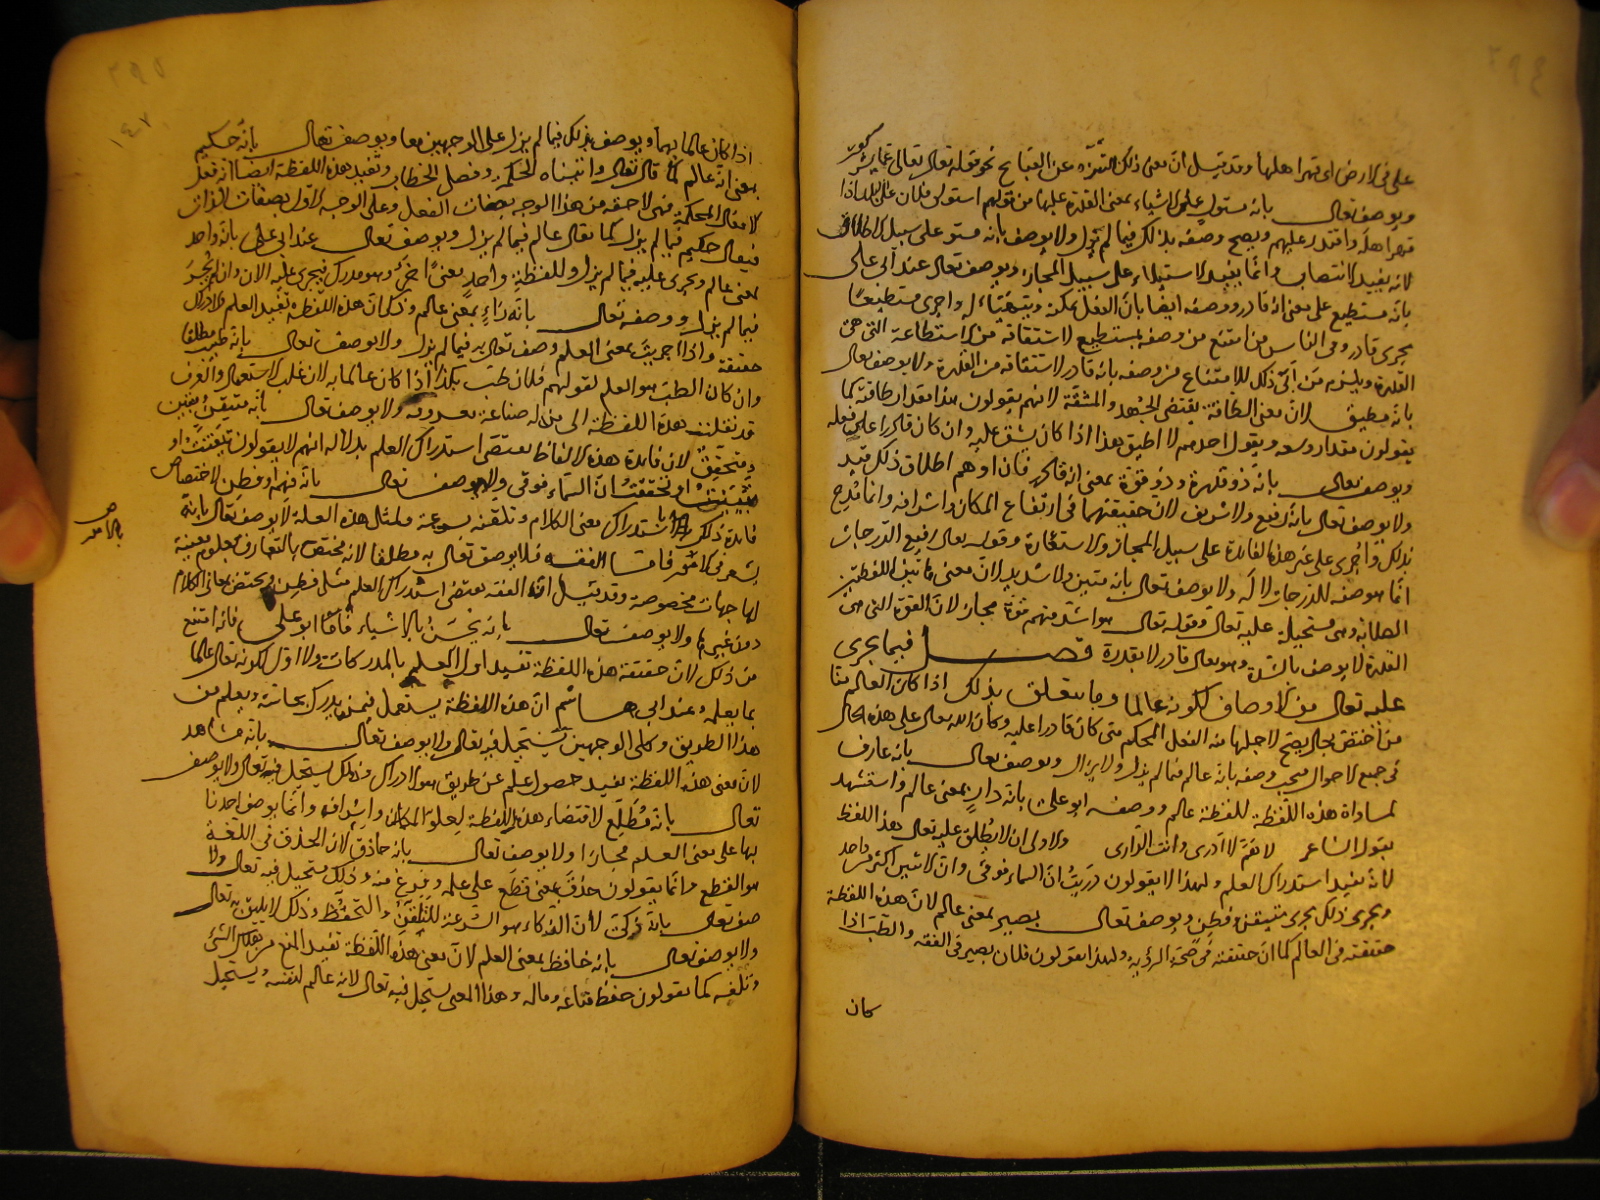 علا في الارض اى قهر اهلها وقد قيل ان معنى ذلك التنزه عن القبايح نحو قوله تعالى تعالى عما يشركون
ويوصف تعالى بانه مستول على الاشياء بمعنى القدرة عليها من قولهم استولى فلان على البلد اذا
قهر اهله واقتدر عليهم ويصح وصفه بذلك فيما لم يزل ولا يوصف بانه مستو على سبيل الاطلاق
لانه يفيد الانتصاب وانما يفيد الاستيلاء على سبيل المجاز ويوصف تعالى عند ابي على
بانه مستطيع على معنى انه قادر ووصفه ايضا بان الفعل يمكنه ويتهيّأ له واجرى مستطيعا
مجرى قادر وفى الناس من امتنع من وصفه بمستطيع لاشتقاقه من الاستطاعة التى هى
القدرة ويلزمه من اتى ذلك الامتناع من وصفه بانه قادر لاشتقاقه من القدرة ولا يوصف تعالى
بانه مطيق لان معنى الطاقة يقتضى الجهد والمشقة لانهم يقولون هذا مقدار طاقته كما
يقولون مقدار وسعه ويقول احدهم لا اطيق هذا اذا كان يشق عليه وان كان قادرا على فعله
ويوصف تعالى بانه ذو قدرة وذو قوة بمعنى انه قادر فان اوهم اطلاق ذلك قيد
ولا يوصف تعالى بانه رفيع ولا شريف لان حقيقتهما فى ارتفاع المكان واشرافه وانما تمدح
بذلك واجرى على غير هذه الفائدة على سبيل المجاز والاستعارة وقوله تعالى رفيع الدرجات
انما هو صفة للدرجات لا له ولا يوصف تعالى بانه متين ولا شديد لان معنى هاتين اللفظتين
الصلابة وهى مستحيلة عليه تعالى وقوله تعالى هو اشد منهم قوة مجاز لان القوة التى هى
القدرة لا يوصف بالشدة وهو تعالى قادر لا بقدرة فصل فيما يجرى
عليه تعالى من الاوصاف لكونه عالما وما يتعلق بذلك اذا كان العالم منا
من اختص بحال يصح لاجلها منه الفعل المحكم متى كان قادرا عليه وكان الله تعالى على هذه الحال
فى جميع الاحوال فيجب وصفه بانه عالم فيما لم يزل ولا يزال ويوصف تعالى بانه عارف
لمساواة هذه اللفظة للفظة عالم ووصفه ابو على بانه دار بمعنى عالم واستشهد
بقول الشاعر لاهم لا ادرى وانت الدارى والاولى ان لا يطلق عليه تعالى هذا اللفظ
لانه يفيد استدراك العلم ولهذا لا يقولون دريت ان السماء فوقى وان الاثنين اكثر من واحد
ويجرى ذلك مجرى متيقن وفطن ويوصف تعالى ببصير بمعنى عالم لان هذه اللفظة
حقيقته فى العالم كما ان حقيقته فى صحة الرؤية ولهذا يقولون فلان بصير فى الفقه والطب اذا
كان
اذا كان عالما بهما ويوصف بذلك فيما لم يزل على الوجهين معا ويوصف تعالى بانه حكيم
بمعنى انه عالم كما قال تعالى واتيناه الحكمة وفصل الخطاب وتفيد هذه اللفظة ايضا انه فعل
الافعال المحكمة فهى لاحقة من هذا الوجه بصفات الفعل وعلى الوجه الاول بصفات الذات
فيقال حكيم فيما لم يزل كما يقال عالم فيما لم يزل ويوصف تعالى عند ابى على بانه واجد
بمعنى عالم ويجرى عليه فيما لم يزل وللفظة واجد معنى اخر وهو مدرك فيجرى عليه الان وان لم يجر
فيما لم يزل ووصفه تعالى بانه راء بمعنى عالم وذكر ان هذه اللفظة تفيد العلم والادراك
حقيقة واذا اجريت بمعنى العلم وصف تعالى به فيما لم يزل ولا يوصف تعالى بانه طبيب مطلقا
وان كان الطب هو العلم لقولهم فلان طب بكذا اذا كان عالما به لان غلب الاستعمال والعرف
قد نقلت هذه اللفظة الى من له صناعة معروفة ولا يوصف تعالى بانه متيقن
ومتحقق لان فائدة هذه الالفاظ تقتضى استدراك العلم بدلالة انهم لا يقولون تيقنت او
تحققت ان السماء فوقى ولا يوصف تعالى بانه فهم او فطن لاختصاص
فائدة ذلك باستدراك معنى الكلام وتلقنه بسرعة ولمثل هذه العلة لا يوصف تعالى بانه
يشعر فى الامور فاما الفقه فلا يوصف تعالى به مطلقا لانه مختص بالتعارف بعلوم معينة
لها جهات مخصوصة وقد قيل ان الفقه يقتضى استدراك العلم مثل فطن ويختص معانى الكلام
دون غيرها ولا يوصف تعالى بانه يحس بالاشياء فاما ابو على فانه امتنع
من ذلك لان حقيقة هذه اللفظة تفيد اول العلم بالمدركات ولا اول لكونه تعالى عالما
بما يعلمه وعند ابى هاشم ان هذه اللفظة يستعمل فيمن يدرك بحاسة ويعلم من
هذا الطريق وكلى الوجهين يستحيل فيه تعالى ولا يوصف تعالى بانه مشاهد
لان معنى هذه اللفظة يفيد حصول علم عن طريق هو الادراك وذلك يستحيل فيه تعالى ولا يوصف
تعالى بانه مطلع لاقتضاء هذه اللفظة لعلو المكان واشرافه وانما يوصف احدنا
بها على معنى العلم مجازا ولا يوصف تعالى بانه حاذق لان الحذق فى اللغة
هو القطع وانما يقولون حذق بمعنى قطع على علمه وفرغ منه وذلك مستحيل فيه تعالى ولا
يوصف تعالى بانه ذكى لان الذكاء هو السرعة للتلقن والتحفظ وذلك لا يليق به تعالى
ولا يوصف تعالى بانه حافظ بمعنى العلم لان معنى هذه اللفظة تفيد المنع من هلاك الشئ
وتلفه كما يقولون حفظ متاعه وماله وهذا المعنى يستحيل فيه تعالى لانه عالم لنفسه ويستحيل